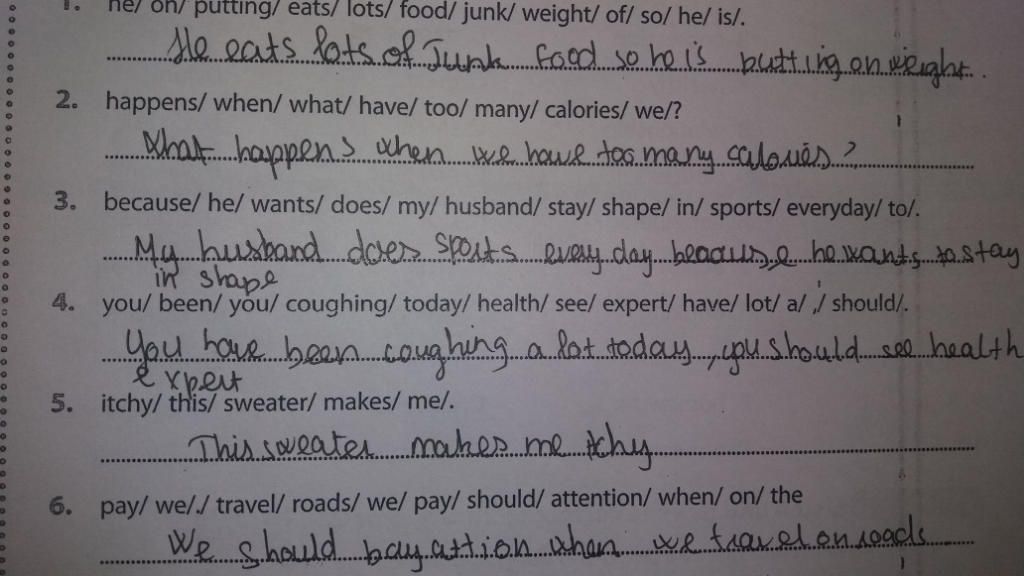 1. he/ on/ putting/ eats/ lots/ food/ junk/ weight/ of/ so/ he/ is/.
He eats lots of Junk Food so he is butting on weight.
2. happens/ when/ what/ have/ too/ many/ calories/ we/?
What happens when we have too many calories?
3. because/ he/ wants/ does/ my/ husband/ stay/ shape/ in/ sports/ everyday/ to/.
My husband does sports every day because he wants to stay
in shape
4. you/ been/ you/ coughing/ today/ health/ see/ expert/ have/ lot/ a/ ,/ should/.
You have been coughing a lot today, you should see health
expert
5. itchy/ this/ sweater/ makes/ me/.
This sweater makes me itchy
6. pay/ we/./ travel/ roads/ we/ pay/ should/ attention/ when/ on/ the
We should bay attion when we travel on roads